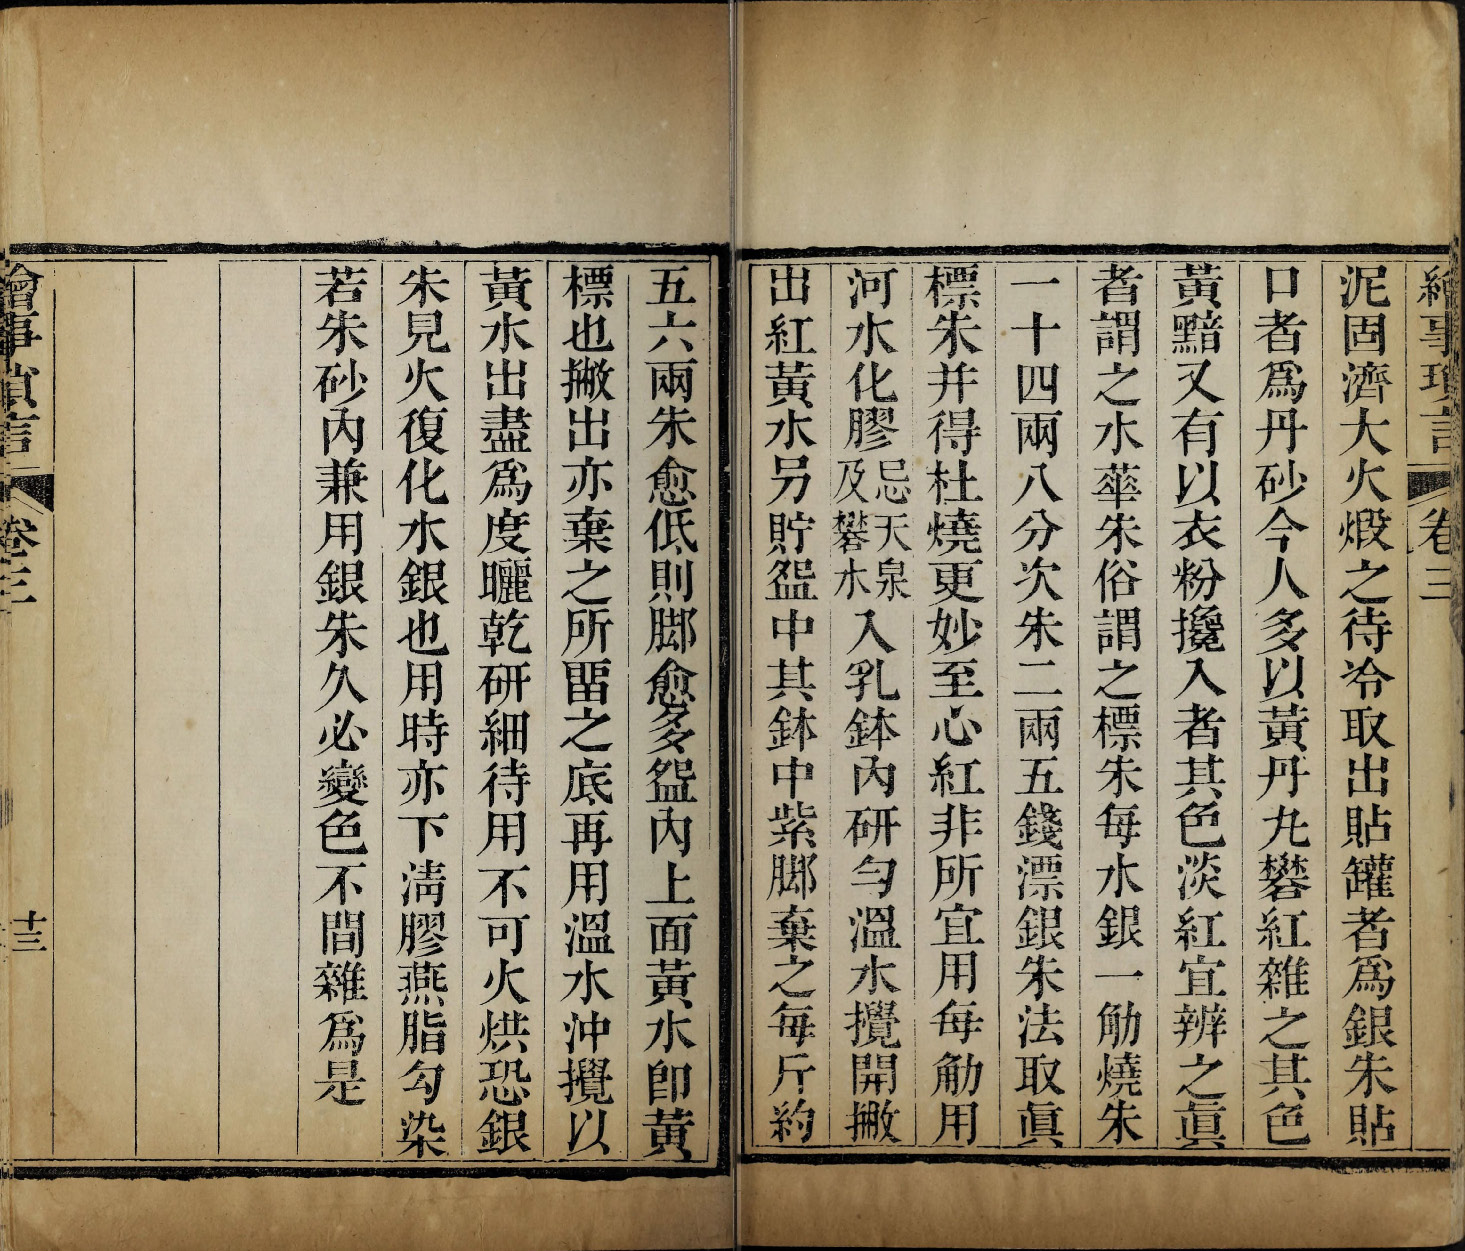 繪事瑣言 卷三
泥固濟大火煅之待冷取出貼罐者爲銀朱貼
口者爲丹砂今人多以黃丹及礬紅雜之其色
黃黯又有以衣粉攙入者其色淡紅宜辨之眞
者謂之水華朱俗謂之標朱每水銀一觔燒朱
一十四兩八分次朱二兩五錢漂銀朱法取眞
標朱并得杜燒更妙至心紅非所宜用每觔用
河水化膠忌天泉及礬水入乳鉢內研勻溫水攪開撇
出紅黃水另貯盌中其鉢中紫脚棄之每斤約
五六兩朱愈低則脚愈多盌內上面黃水卽黃
標也撇出亦棄之所畱之底再用溫水沖攪以
黃水出盡爲度曬乾研細待用不可火烘恐銀
朱見火復化水銀也用時亦下淸膠燕脂勾染
若朱砂內兼用銀朱久必變色不間雜爲是
繪事瑣言 卷三 十三